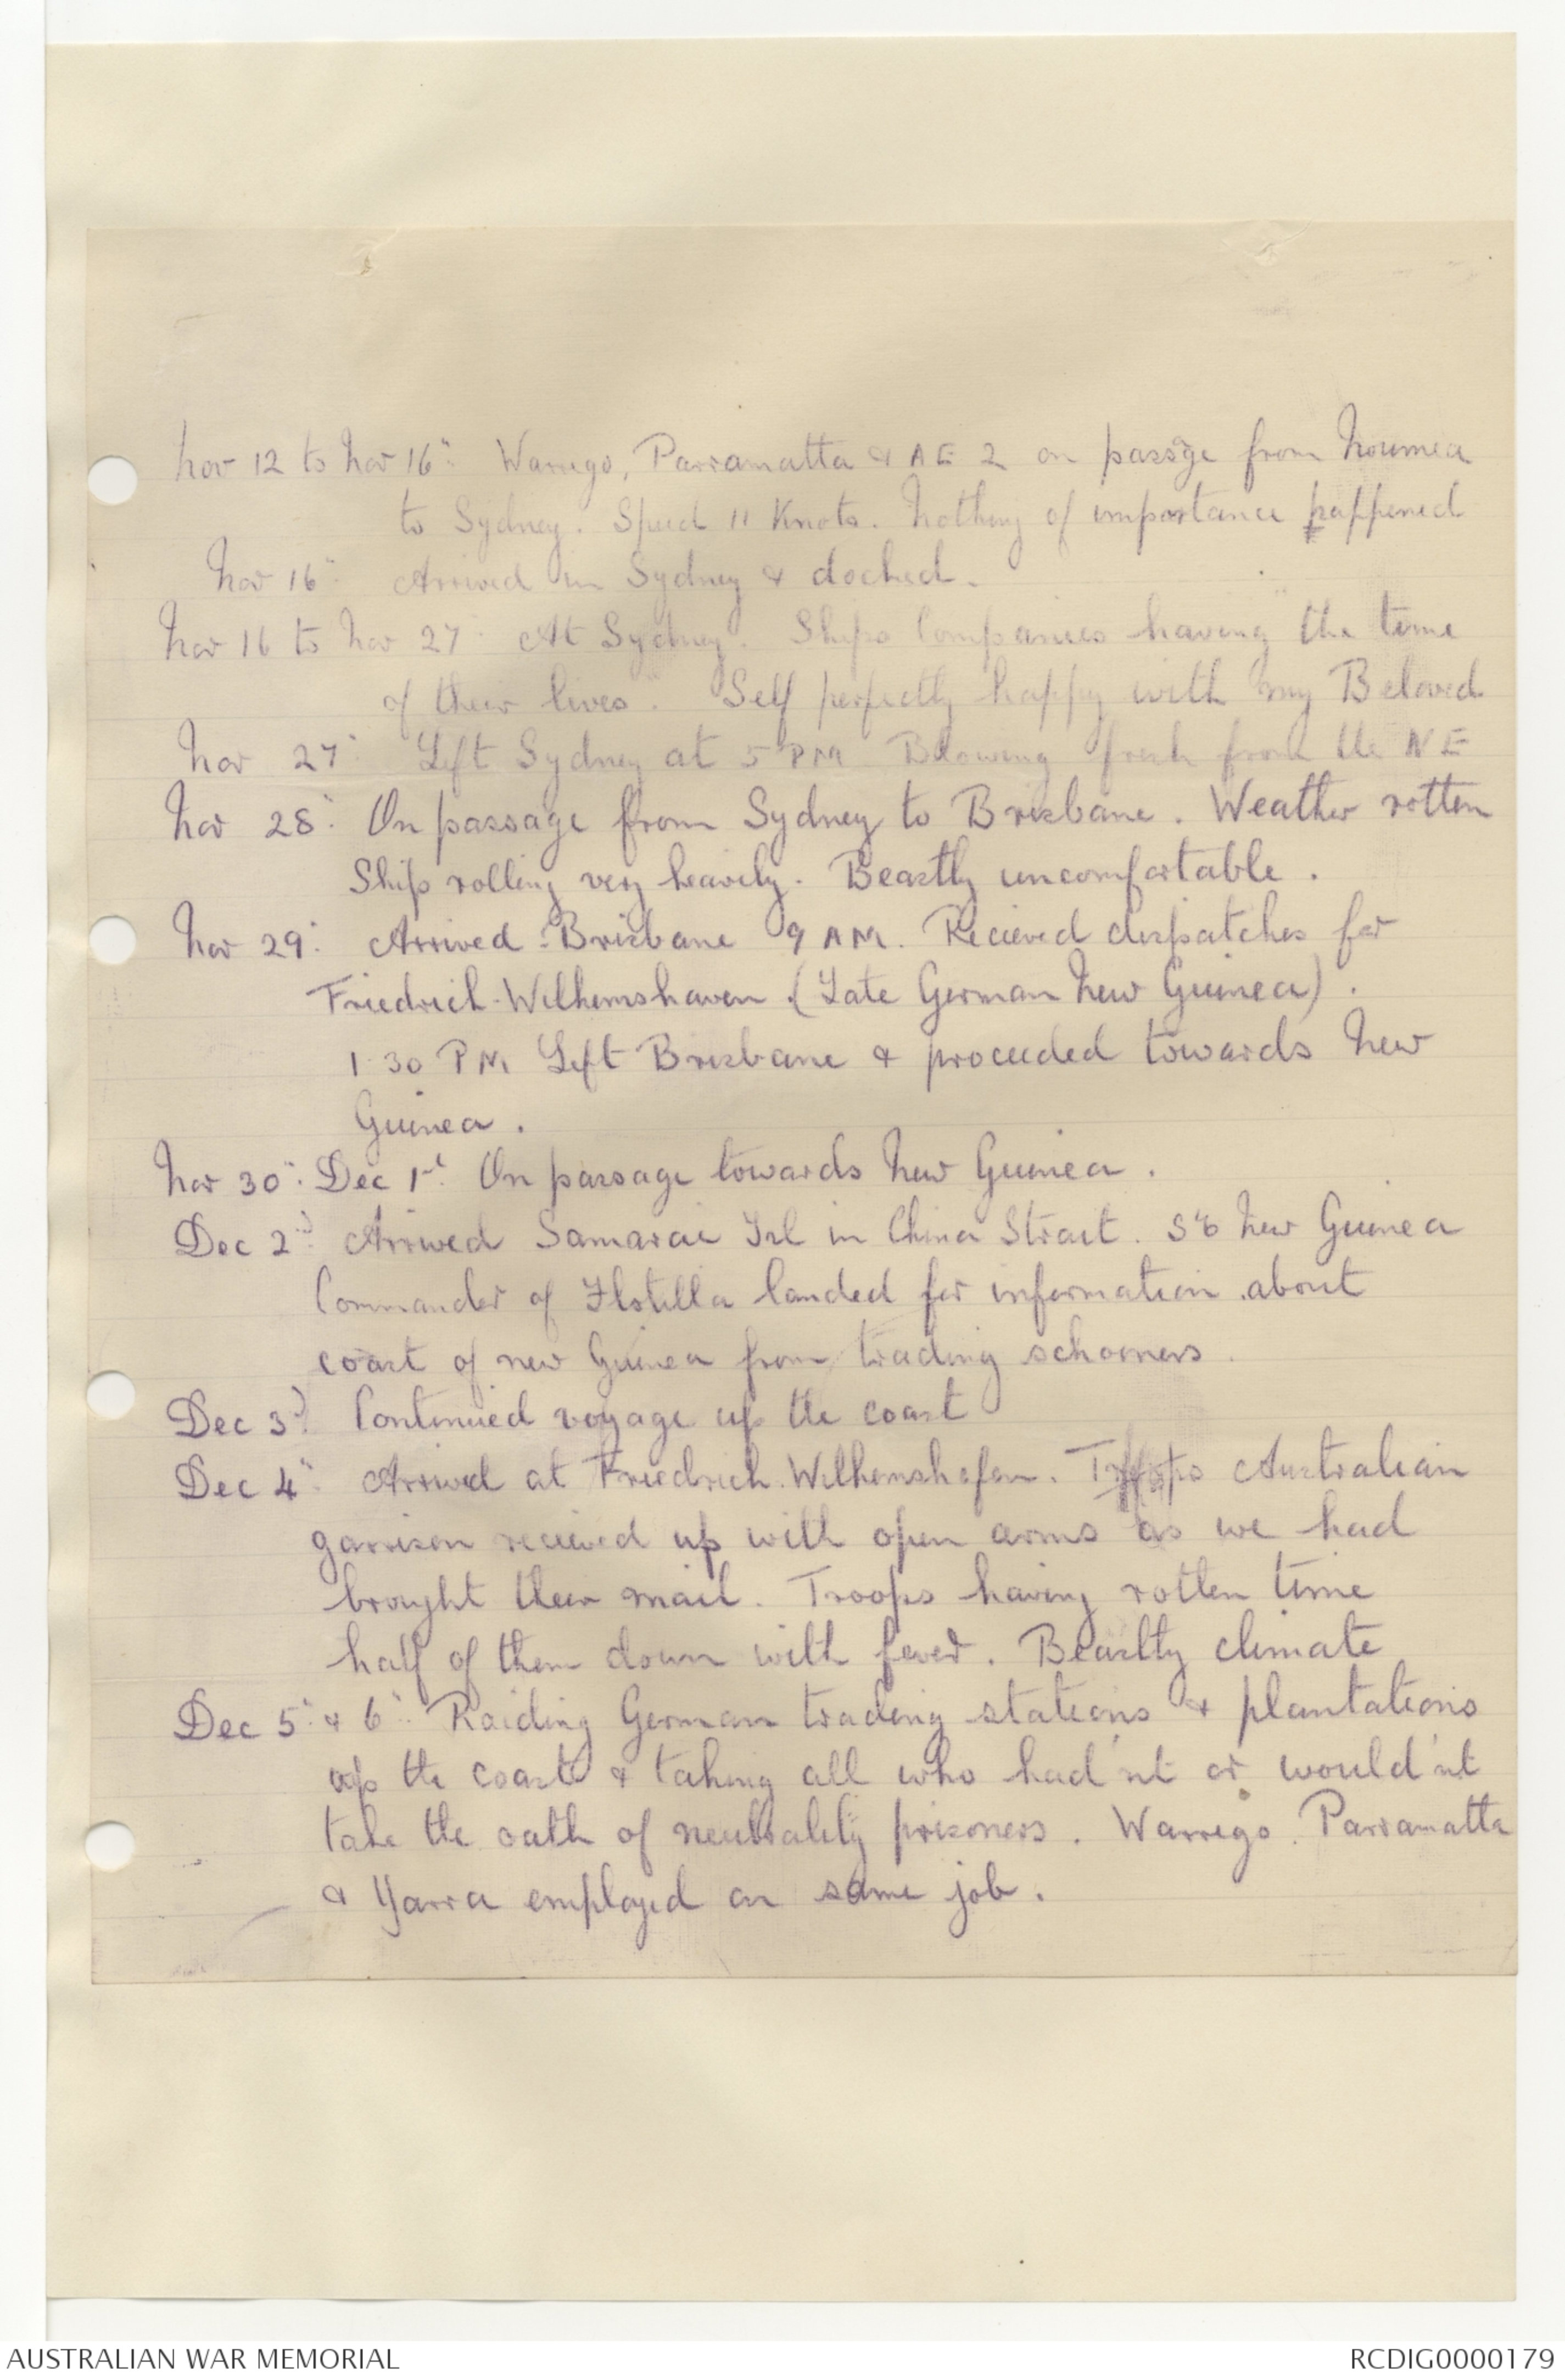 Nov 12 to Nov 16th. Warrego, Parramatta & AE 2 on passge from Noumea
to Sydney. Speed 11 Knots. Nothing of importance happened
Nov 16th. Arrived in Sydney & docked.
Nov 16 to Nov 27th At Sydney. Ships Companies having the time
of their lives. Self perfectly happy with my Beloved
Nov 27th Left Sydney at 5 PM Blowing fresh from the NE
Nov 28th. On passage from Sydney to Brisbane. Weather rotten
Ship rolling very heavily. Beastly uncomfortable.
Nov 29th. Arrived Brisbane 9 AM. Recieved dispatches for
Friedrich-Wilhemshaven (Late German New Guinea).
1.30 PM Left Brisbane & proceeded towards New
Guinea.
Nov 30th. Dec 1st. On passage towards New Guinea.
Dec 2nd. Arrived Samarai Isl in China Strait. New Guinea
Commander of Flotilla landed for information about
coast of new Guinea from trading schooners.
Dec 3d. Continued voyage up the coast
Dec 4th. Arrived at Friedrich.Wilhemshafen. Troops Australian
garrison recieved up with open arms as we had
brought their mail. Troops having rotten time
half of them down with fever. Beastly climate
Dec 5th. & 6th. Raiding German trading stations & plantations
up the coast & taking all who had'nt or would'nt
take the oath of neutrality prisoners. Warrego. Parramatta
& Yarra employed on same job.
AUSTRALIAN WAR MEMORIAL
RCDIG0000179